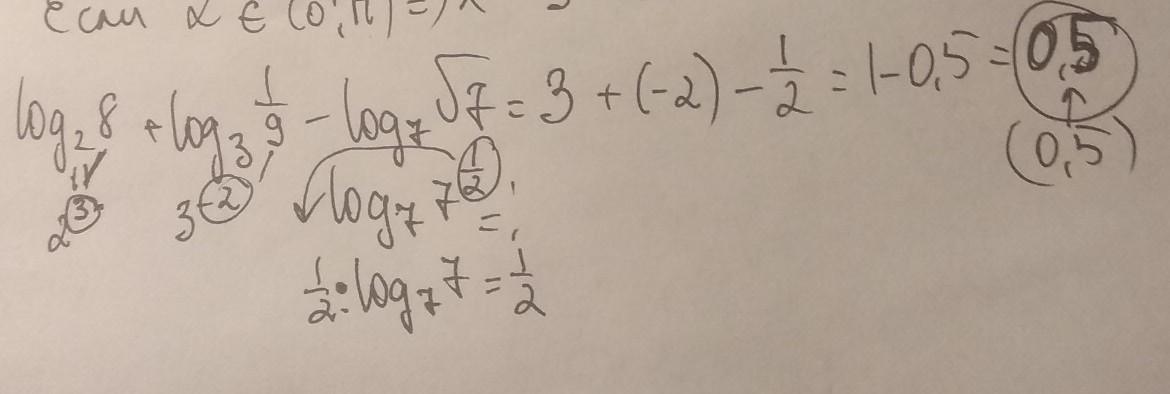 если α ∈ (0; π) =)
log₂ 8 + log₃ 1/9 - log₇ √7 = 3 + (-2) - 1/2 = 1 - 0,5 = 0,5
2³ 3⁻² log₇ 7^(1/2) = (0,5)
1/2 · log₇ 7 = 1/2